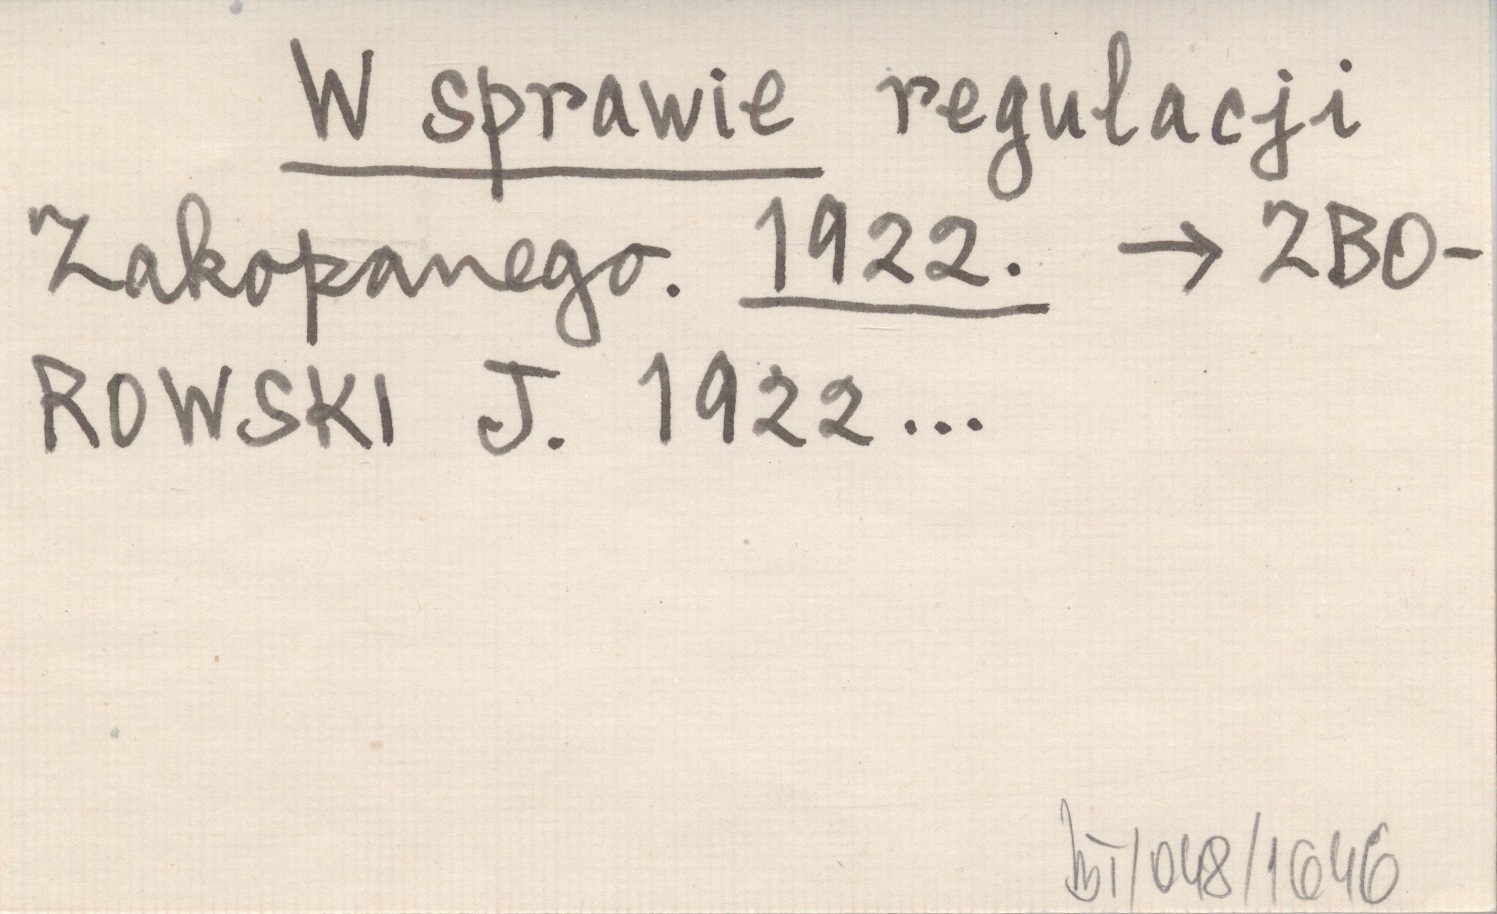 W sprawie regulacji
Zakopanego. 1922. → ZBO-
ROWSKI J. 1922...
/048/1646